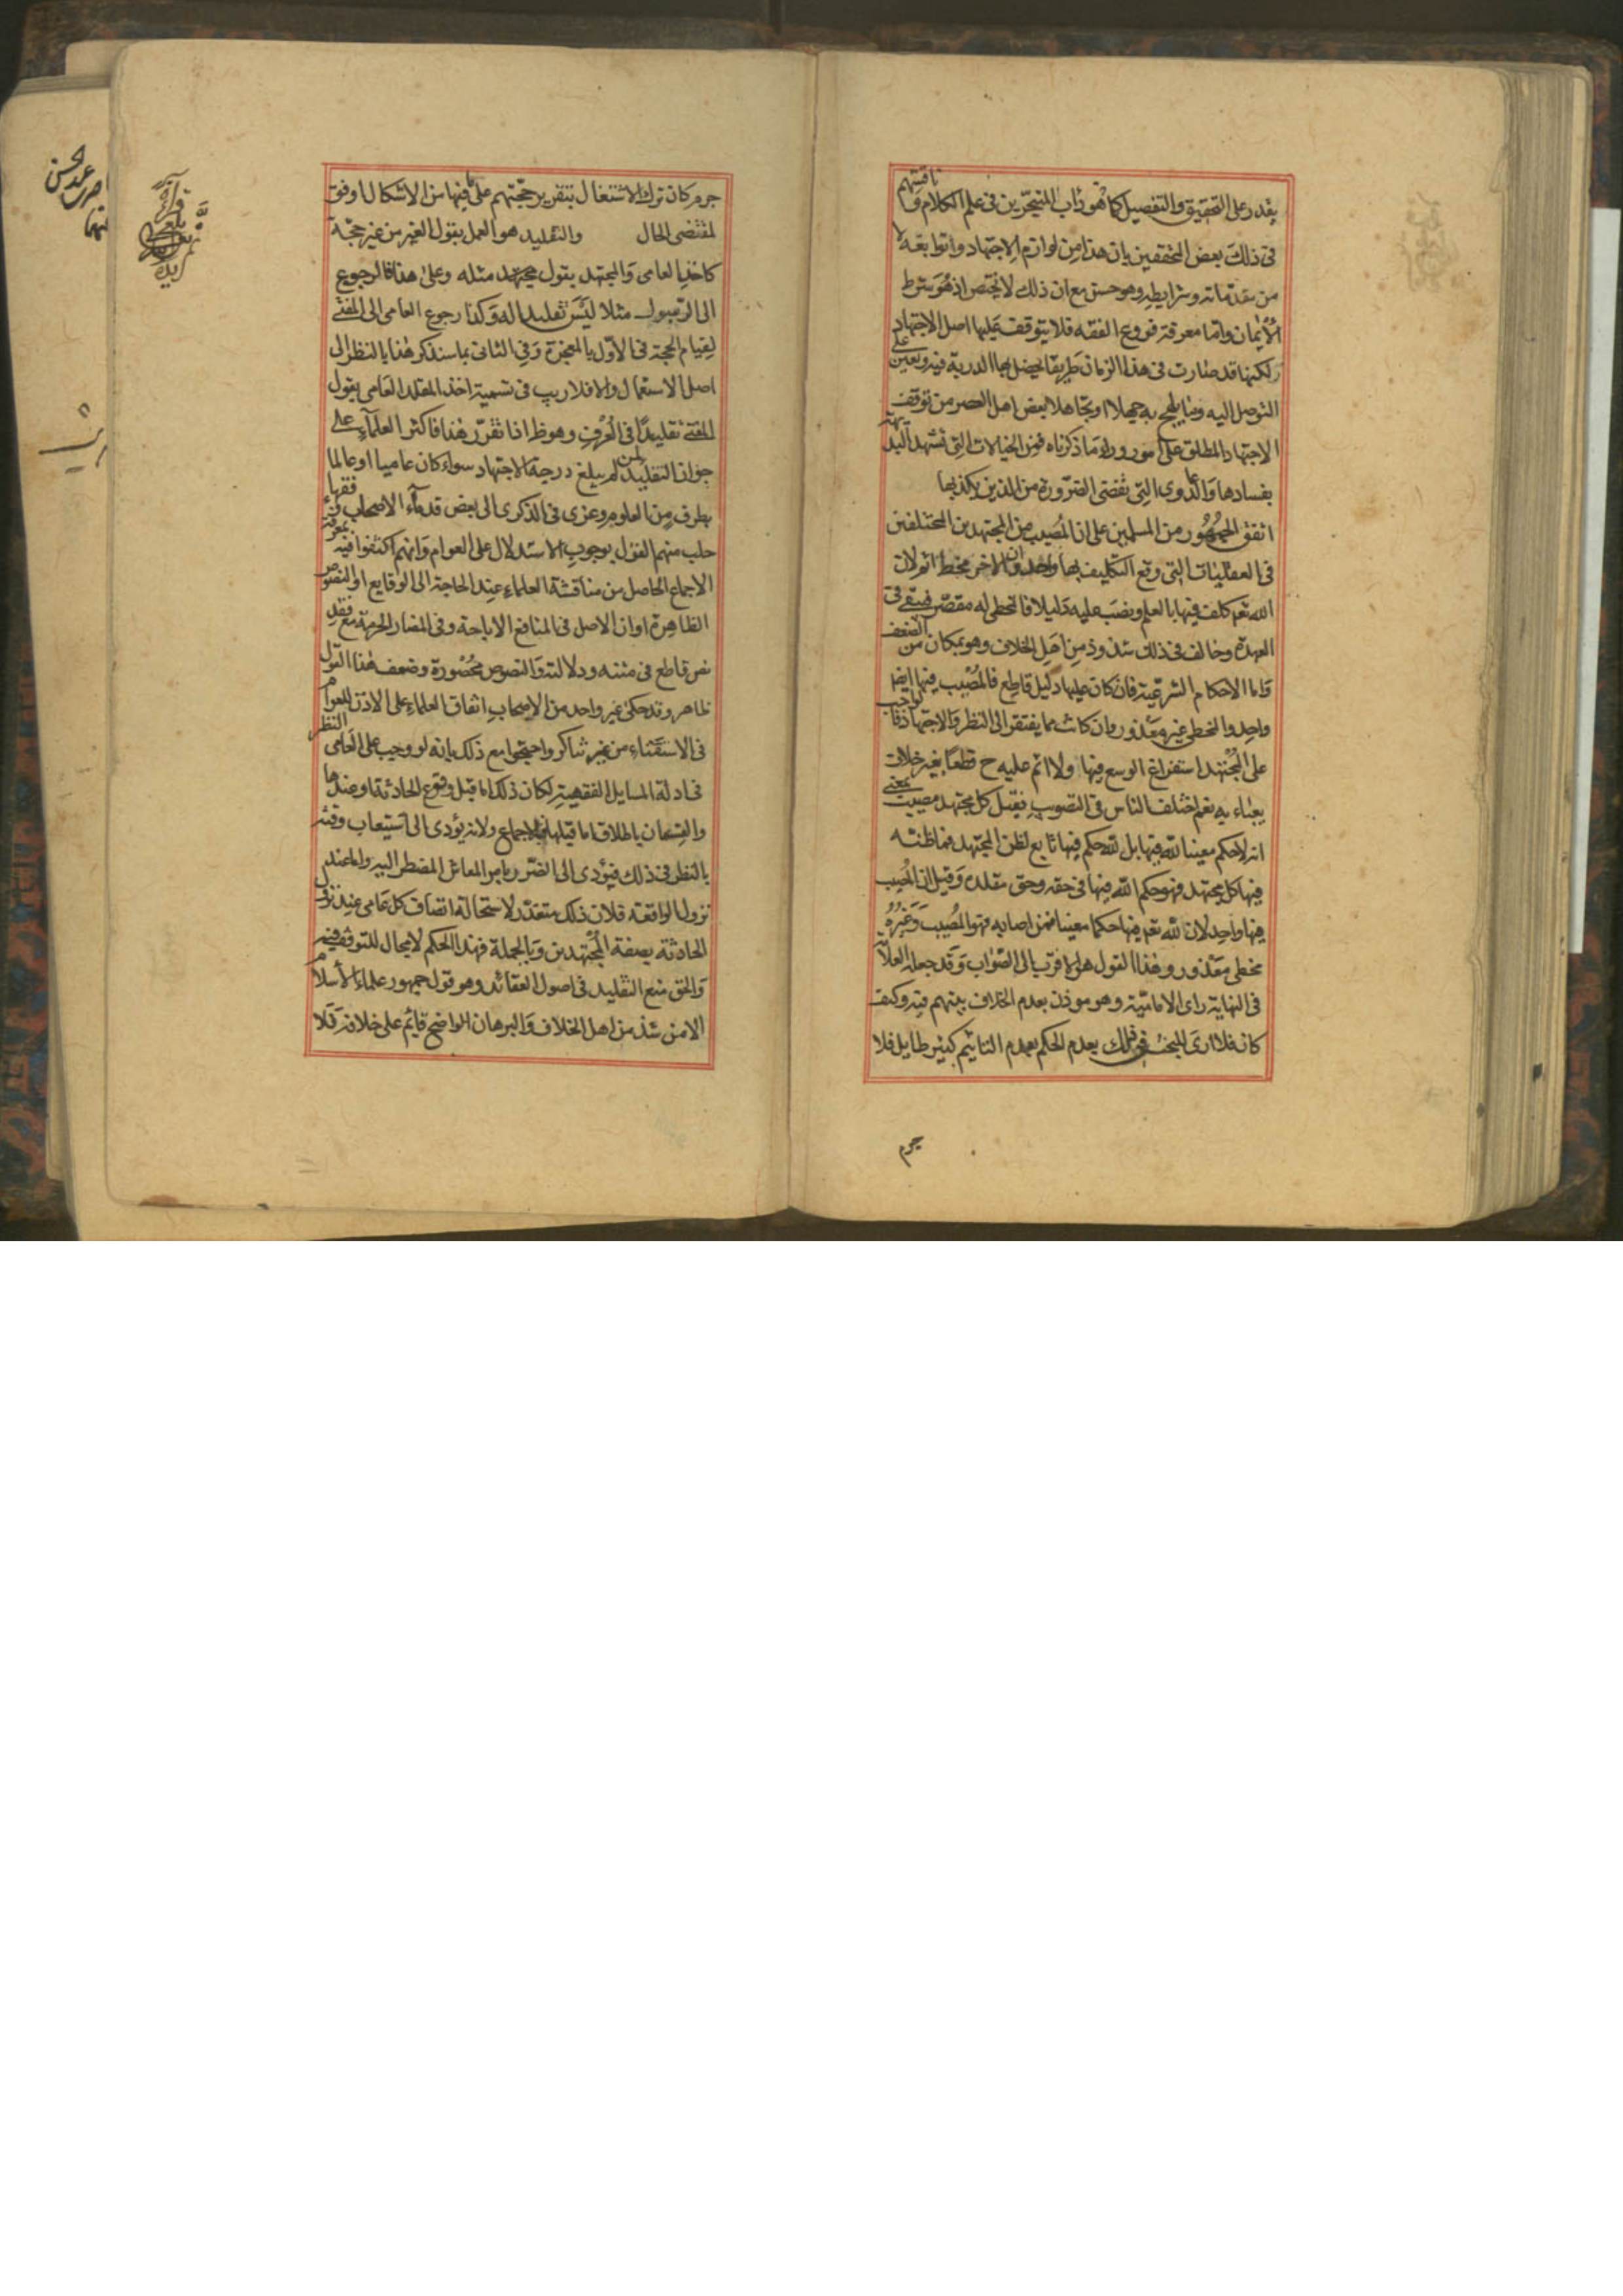 يقدر على التحقيق والتفصيل كما هو داب المتبحرين فى علم الكلام و ناقشهم
فى ذلك بعض المحققين بان هذا من لوازم الاجتهاد وتوابعه لا
من مقدماته وشرايطه وهو حسن مع ان ذلك لا يختص اذ هو شرط
الايمان واما معرفة فروع الفقه فلا يتوقف عليها اصل الاجتهاد
ولكنها قد صارت فى هذا الزمان طريقا يحصل بها الدربة فيه وتعين على
التوصل اليه وما يلهج به جهلا او تجاهلا بعض اهل العصر من توقف
الاجتهاد المطلق على امور وراء ما ذكرناه فمن الخيالات التى تشهد البديهة
بفسادها والدعاوى التى تقضى الضرورة من الدين بكذبها
اتفق الجمهور من المسلمين على ان المصيب من المجتهدين المختلفين
فى العقليات التى وقع التكليف بها واحد وان الاخر مخطئ اثم لان
الله تعم كلف فيها بالعلم ونصب عليه دليلا فالمخطى له مقصر فيبقى فى
العهدة وخالف فى ذلك شذوذ من اهل الخلاف وهو بمكان من الضعف
واما الاحكام الشرعية فان كان عليها دليل قاطع فالمصيب فيها ايضا
واحد والمخطى غير معذور وان كانت مما يفتقر الى النظر والاجتهاد فالواجب
على المجتهد استفراغ الوسع فيها ولا اثم عليه ح قطعا بغير خلاف
يعباء به نعم اختلف الناس فى التصويب فقيل كل مجتهد مصيب بمعنى
انه لا حكم معينا لله فيها بل لله حكم فيها تابع لظن المجتهد فما ظنه
فيها كل مجتهد فهو حكم الله فيها فى حقه وحق مقلده وقيل ان المصيب
فيها واحد لان لله تعم فيها حكما معينا فمن اصابه فهو المصيب وغيره
مخطى معذور وهذا القول هو الاقرب الى الصواب وقد جعله العلامة
فى النهاية راى الامامية وهو موذن بعدم الخلاف بينهم فيه وكيف
كان فلا ارى للبحث فى ذلك بعدم الحكم بعدم التاثيم كثير طايل فلا
جرم
جرم كان ترك الاشتغال بتقرير حججهم على ما فيها من الاشكال اوفق
لمقتضى الحال والتقليد هو العمل بقول الغير من غير حجة
كاخذ العامى والمجتهد بقول مجتهد مثله وعلى هذا فالرجوع
الى الرسول مثلا ليس تقليدا له وكذا رجوع العامى الى المفتى
لقيام الحجة فى الاول بالمعجزة وفى الثانى بما سنذكر هذا بالنظر الى
اصل الاستعمال والا فلا ريب فى تسمية اخذ المقلد العامى بقول
المفتى تقليدا فى العرف وهو ظ اذا تقرر هذا فاكثر العلماء على
جواز التقليد لمن لم يبلغ درجة الاجتهاد سواء كان عاميا او عالما
بطرف من العلوم وعزى فى الذكرى الى بعض قدماء الاصحاب وفقهاء
حلب منهم القول بوجوب الاستدلال على العوام وانهم اكتفوا فيه بمعرفة
الاجماع الحاصل من مناقشة العلماء عند الحاجة الى الوقايع او النصوص
الظاهرة او ان الاصل فى المنافع الاباحة وفى المضار الحرمة مع فقد
نص قاطع فى متنه ودلالته والنصوص محصورة وضعف هذا القول
ظاهر وقد حكى غير واحد من الاصحاب اتفاق العلماء على الاذن للعوام
فى الاستفتاء من غير تناكر واحتجوا مع ذلك بانه لو وجب على العامى النظر
فى ادلة المسايل الفقهية لكان ذلك اما قبل وقوع الحادثة او عندها
والقسمان باطلان اما قبلها فبالاجماع ولانه يؤدى الى استيعاب وقته
بالنظر فى ذلك فيؤدى الى الضرر بامر المعاش المضطر اليه واما عند
نزول الواقعة فلان ذلك متعذر لاستحالة اتصاف كل عامى عند نزول
الحادثة بصفة المجتهدين وبالجملة فهذا الحكم لا مجال للتوقف فيه
والحق منع التقليد فى اصول العقائد وهو قول جمهور علماء الاسلام
الا من شذ من اهل الخلاف والبرهان الواضح قايم على خلافه فلا